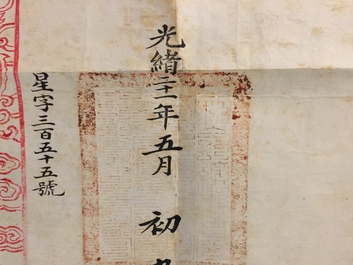 光緒二十一年五月初
星字三百五十五號